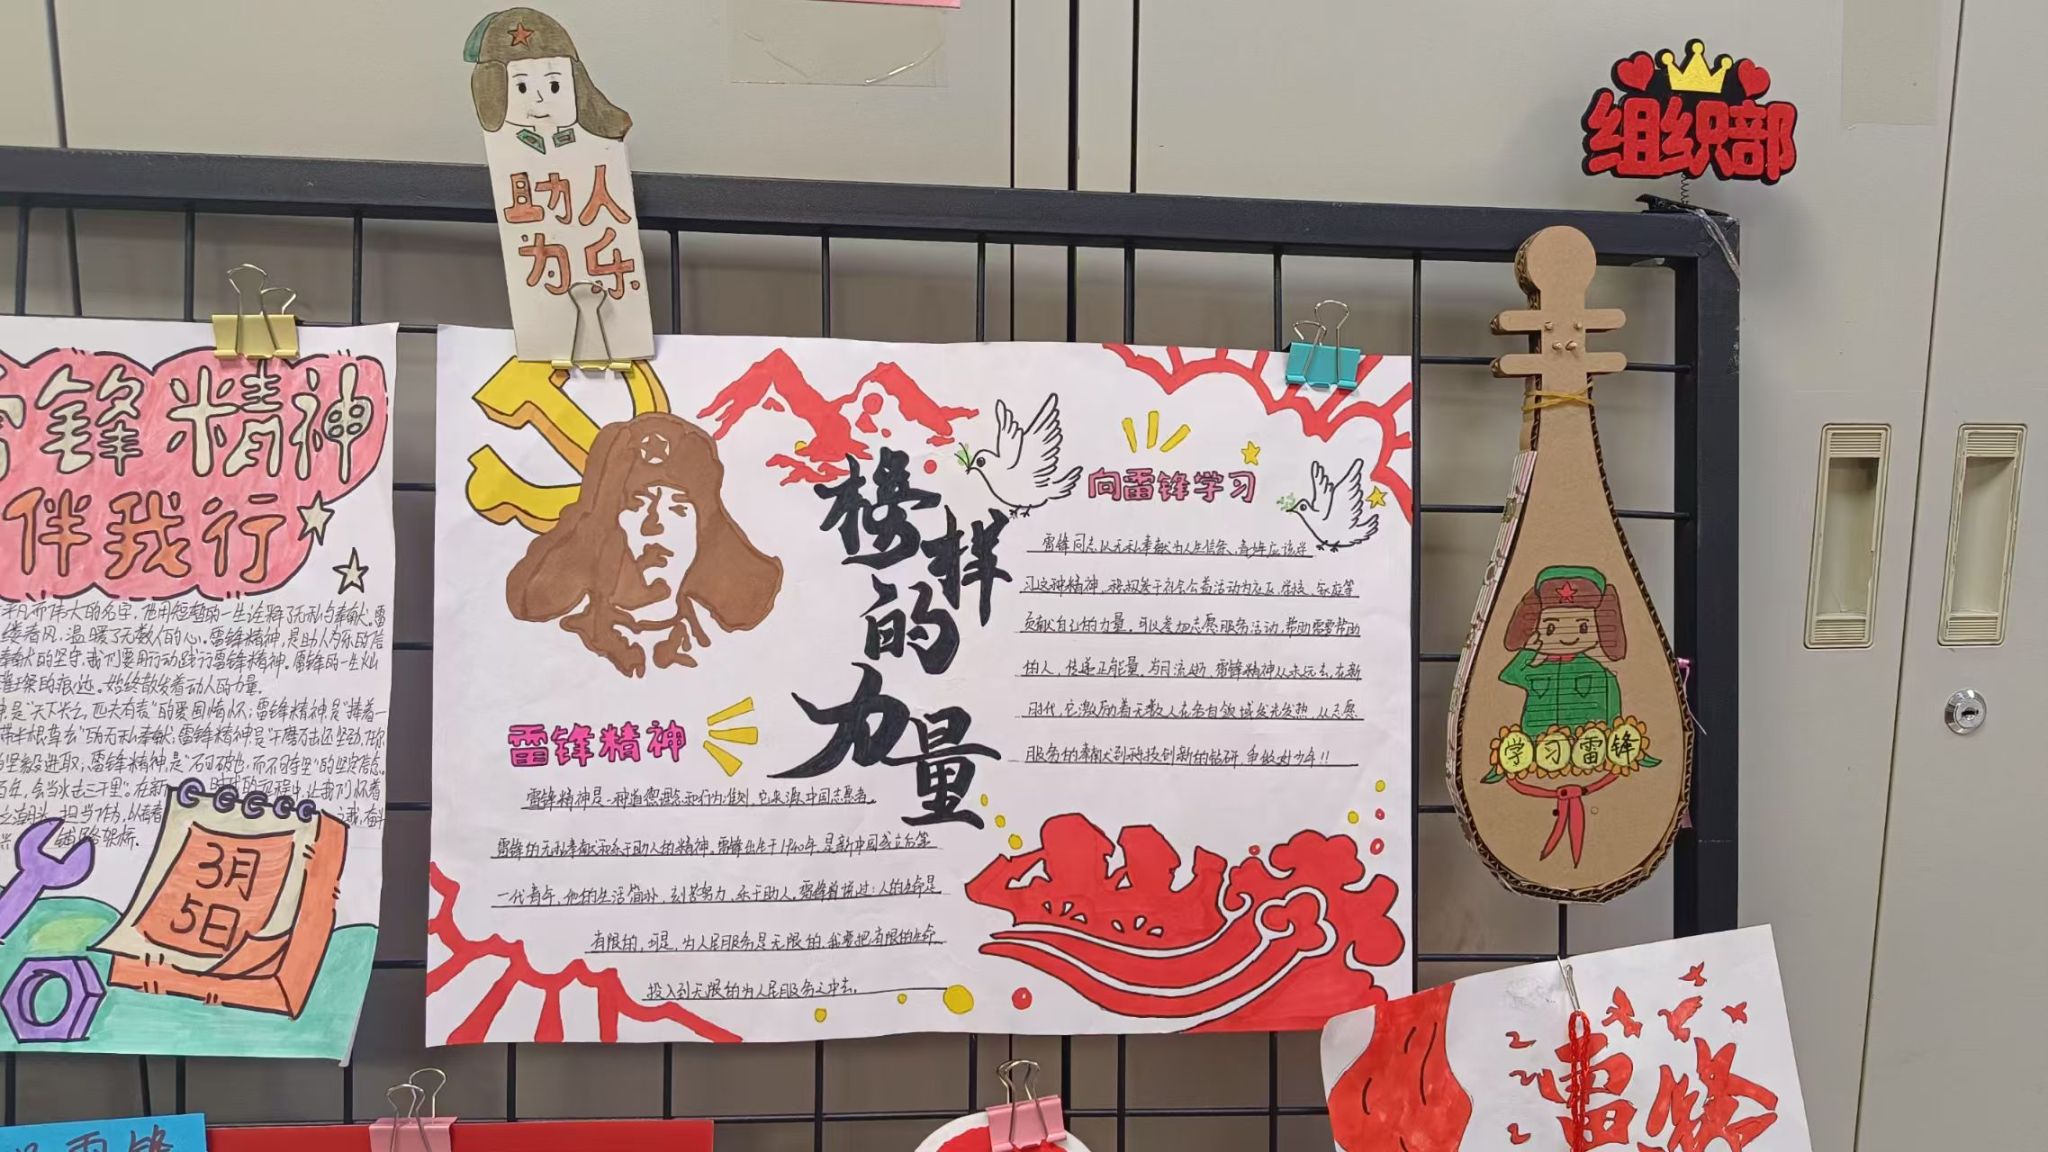 组织部
助人
为乐
雷锋精神
伴我行
平凡而伟大的名字，他用短暂的一生诠释了无私的奉献。雷
缕春风，温暖了无数人的心。雷锋精神，是助人为乐的信
奉献的坚守，我们要用行动践行雷锋精神。雷锋的一生灿
璀璨的痕迹。始终散发着动人的力量。
是"天下兴亡，匹夫有责"的爱国情怀；雷锋精神是"捧着一
带半根草去"的无私奉献，雷锋精神，是"千磨万击还坚劲，任尔
坚毅进取；雷锋精神，是"石可破也，而不可夺坚"的坚定信念。
百年，会当水击三千里"。在新
让我们怀着
之潮头，担当作为，以青春
之我，奋斗
铺路架桥.
3月
5日
榜样
的
力量
向雷锋学习
雷锋同志以无私奉献为人生信条，青年应该学
习这种精神，积极参于社会公益活动为社区、学校、家庭等
贡献自己的力量。可以参加志愿服务活动，帮助需要帮助
的人，传递正能量。岁月流逝，雷锋精神从未远去，在新
时代，它激励着无数人在各自领域发光发热，从志愿
服务的奉献到科技创新的钻研，争做好少年!!
雷锋精神
雷锋精神是一种道德理念和行为准则，它来源中国志愿者。
雷锋的无私奉献和乐于助人的精神。雷锋出生于1940年，是新中国成立后第
一代青年，他的生活简朴，刻苦努力，乐于助人。雷锋曾说过：人的生命是
有限的，可是，为人民服务是无限的，我要把有限的生命
投入到无限的为人民服务之中去。
学习雷锋
雷锋
雷锋